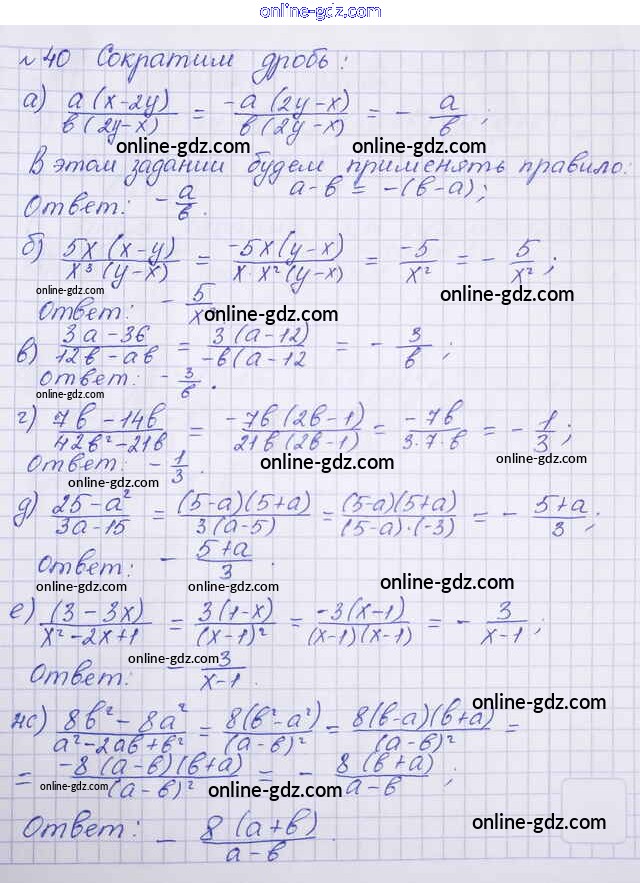 online-gdz.com
№ 40 Сократим дробь:
а) a(x-2y)/b(2y-x) = -a(2y-x)/b(2y-x) = - a/b;
online-gdz.com online-gdz.com
В этом задании будем применять правило:
a-b = -(b-a);
Ответ: - a/b.
б) 5x(x-y)/x³(y-x) = -5x(y-x)/x·x²(y-x) = -5/x² = - 5/x²;
online-gdz.com online-gdz.com
Ответ: - 5/x² online-gdz.com
в) 3a-36/12b-ab = 3(a-12)/-b(a-12 = - 3/b;
Ответ: - 3/b.
online-gdz.com
г) 7b-14b/42b²-21b = -7b(2b-1)/21b(2b-1) = -7b/3·7·b = - 1/3;
Ответ: - 1/3.
online-gdz.com online-gdz.com online-gdz.com
д) 25-a²/3a-15 = (5-a)(5+a)/3(a-5) = (5-a)(5+a)/(5-a)·(-3) = - 5+a/3;
Ответ: - 5+a/3.
online-gdz.com online-gdz.com online-gdz.com
е) (3-3x)/x²-2x+1 = 3(1-x)/(x-1)² = -3(x-1)/(x-1)(x-1) = - 3/x-1;
online-gdz.com
Ответ: - 3/x-1.
online-gdz.com
ж) 8b²-8a²/a²-2ab+b² = 8(b²-a²)/(a-b)² = 8(b-a)(b+a)/(a-b)² =
= -8(a-b)(b+a)/(a-b)² = - 8(b+a)/a-b;
online-gdz.com online-gdz.com online-gdz.com
Ответ: - 8(a+b)/a-b.
online-gdz.com